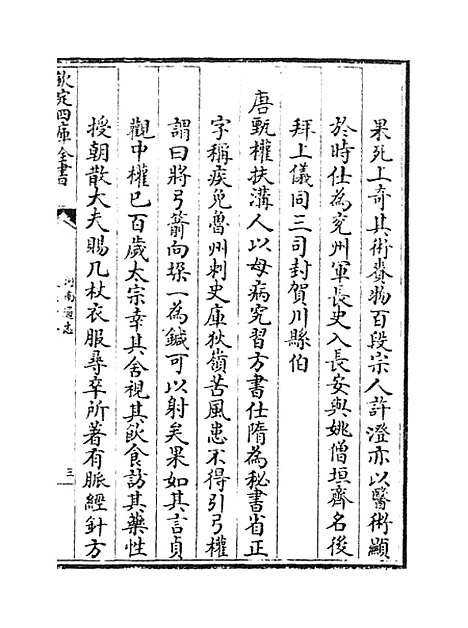 果死上奇其術賚物百段宗人許澄亦以醫術顯
於時仕為兖州軍長史入長安與姚僧垣齊名後
拜上儀同三司封賀川縣伯
唐甄權扶溝人以母病究習方書仕隋為秘書省正
字稱疾免魯州刺史庫狄嶺苦風患不得引弓權
謂曰將弓箭向垜一為鍼可以射矣果如其言貞
觀中權已百歲太宗幸其舍視其飲食訪其藥性
授朝散大夫賜几杖衣服尋卒所著有脈經針方
欽定四庫全書
河南通志
三